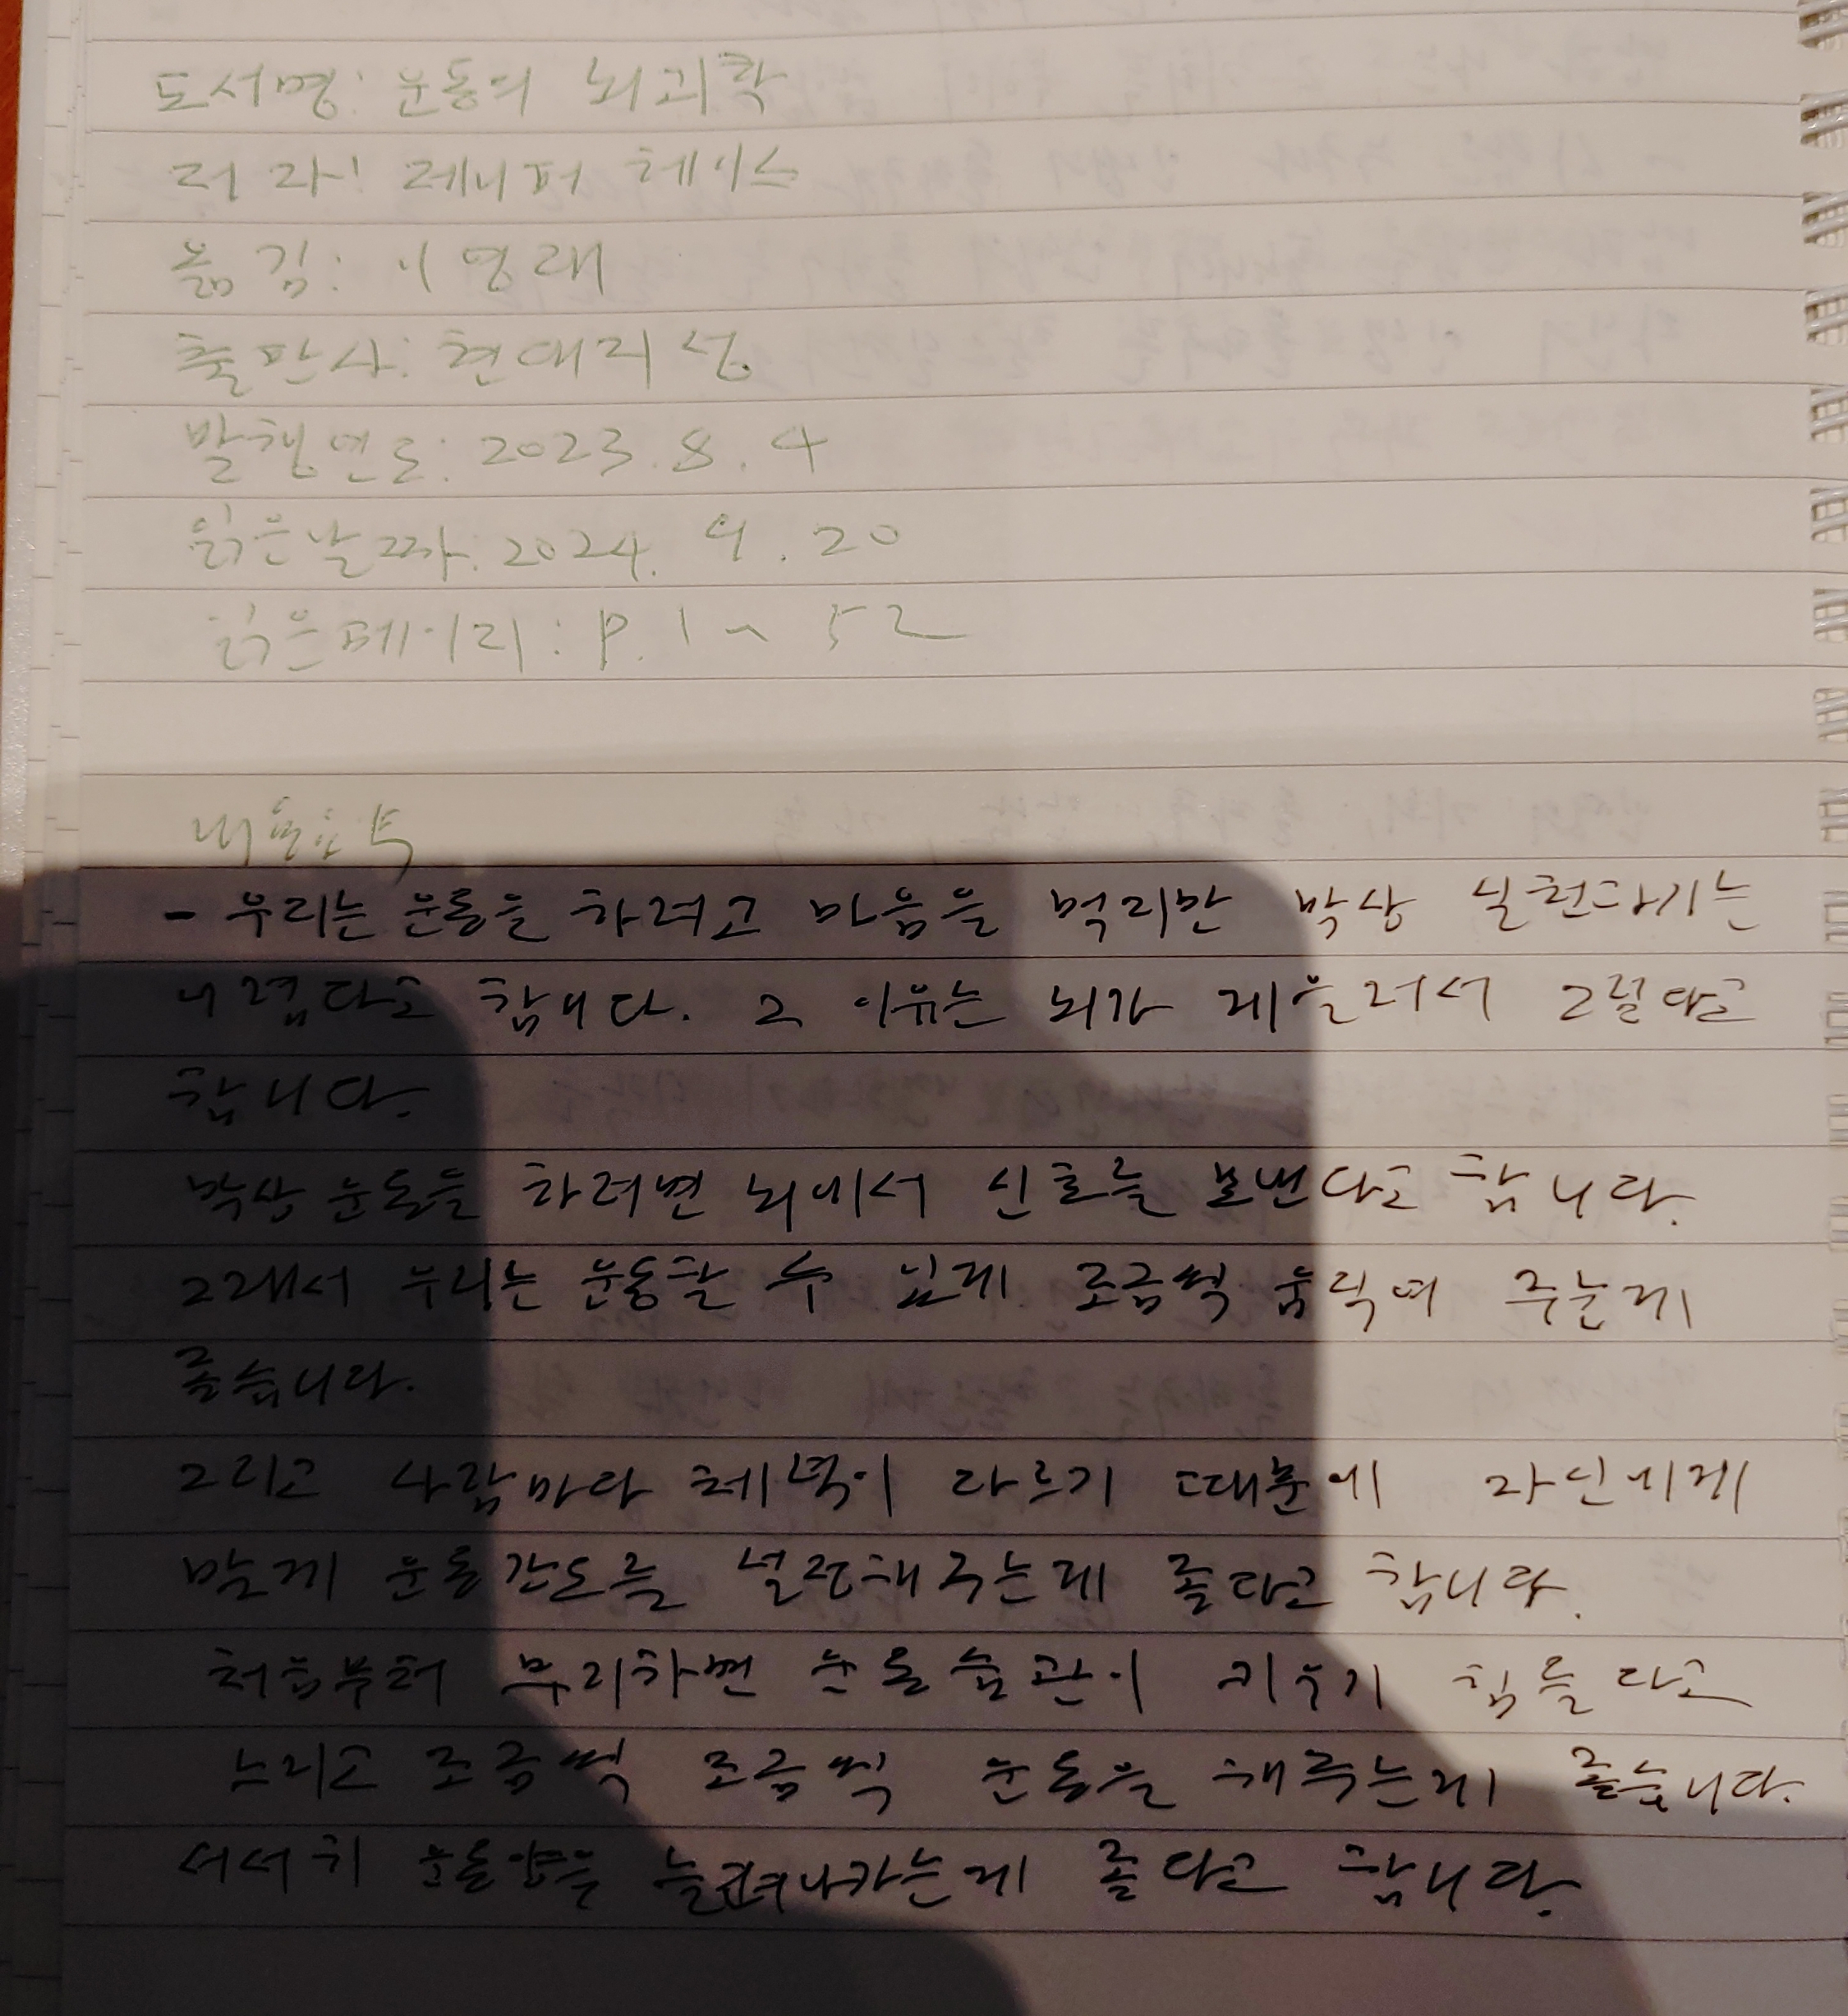 도서명: 운동의 뇌과학
저자: 제니퍼 헤이스
옮김: 이영래
출판사: 현대지성
발행연도: 2023. 8. 4
읽은날짜: 2024. 9. 20
읽은페이지: p. 1 ~ 52
내용요약
- 우리는 운동을 하려고 마음을 먹지만 막상 실천하기는
어렵다고 합니다. 그 이유는 뇌가 게을러서 그렇다고
합니다.
막상 운동을 하려면 뇌에서 신호를 보낸다고 합니다.
그래서 우리는 운동할 수 있게 조금씩 움직여 주는게
좋습니다.
그리고 사람마다 체력이 다르기 때문에 자신에게
맞게 운동강도를 설정해 주는게 좋다고 합니다.
처음부터 무리하면 운동습관이 키우기 힘들다고
느리고 조금씩 조금씩 운동을 해주는게 좋습니다.
서서히 운동양을 늘려나가는게 좋다고 합니다.